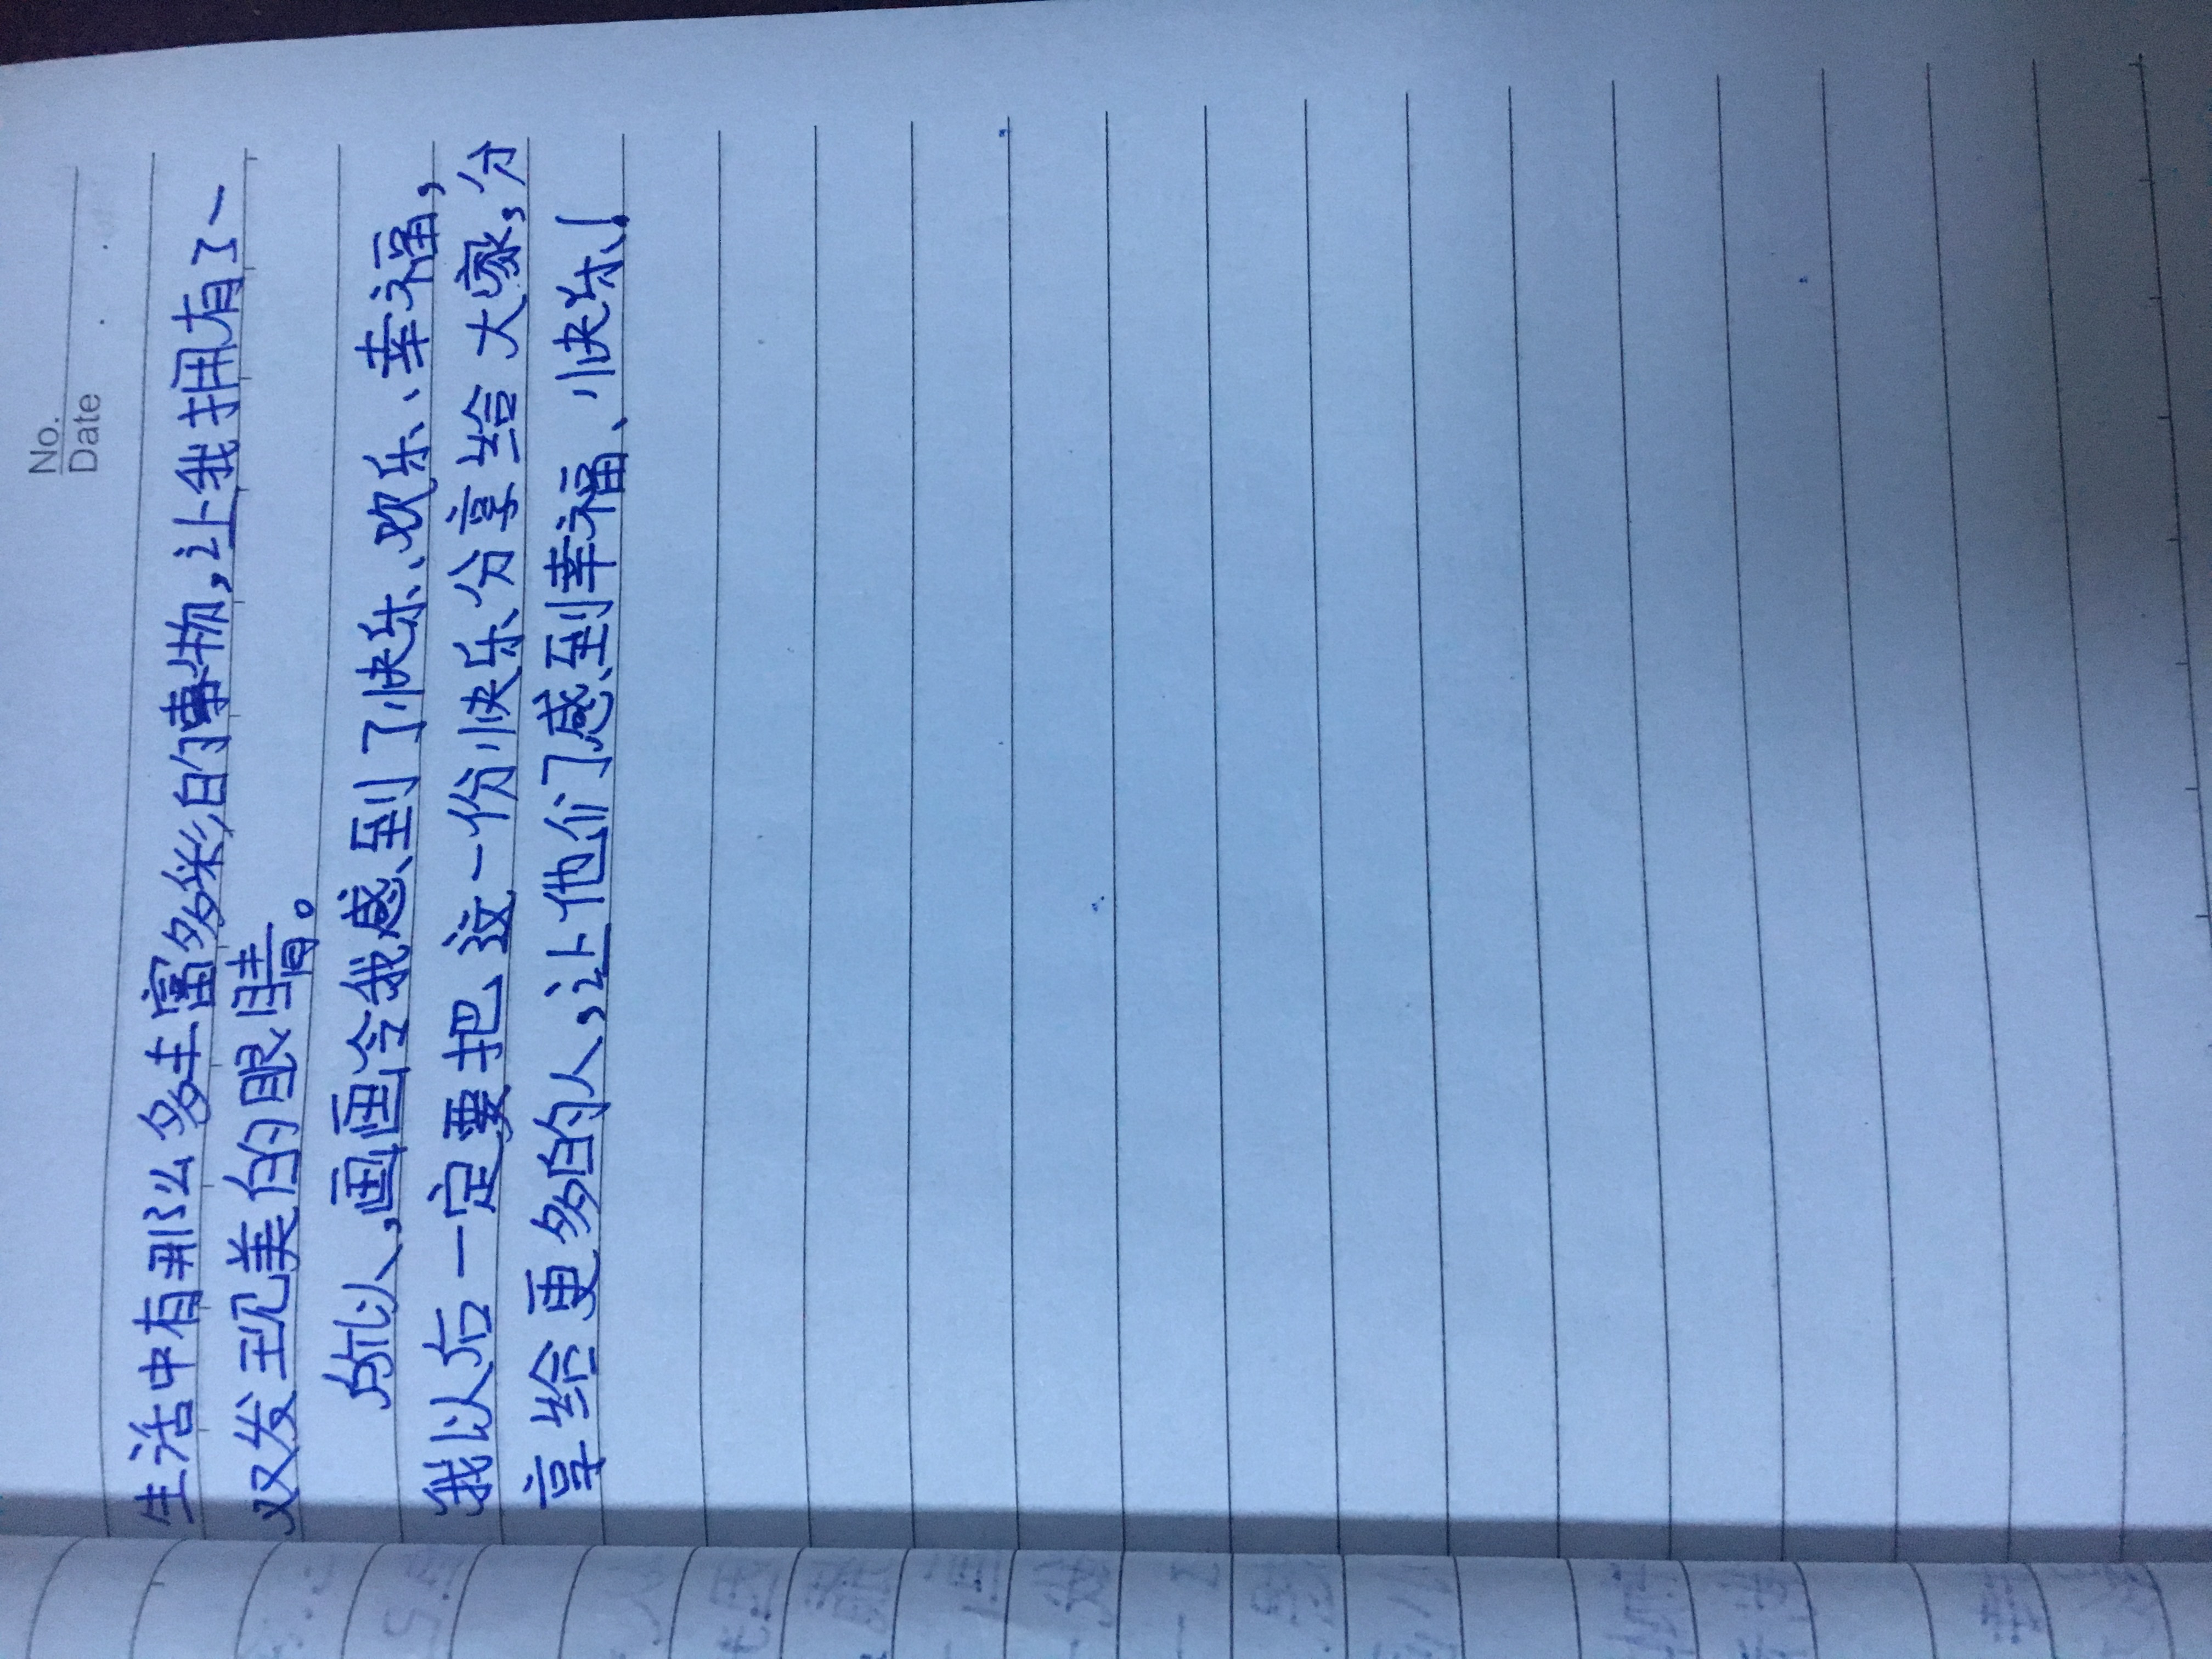 No.
Date
生活中有那么多丰富多彩的事物,让我拥有了一
双发现美的眼睛。
所以,画画令我感到了快乐、欢乐、幸福,
我以后一定要把这一份快乐分享给大家,分
享给更多的人,让他们感到幸福、快乐!